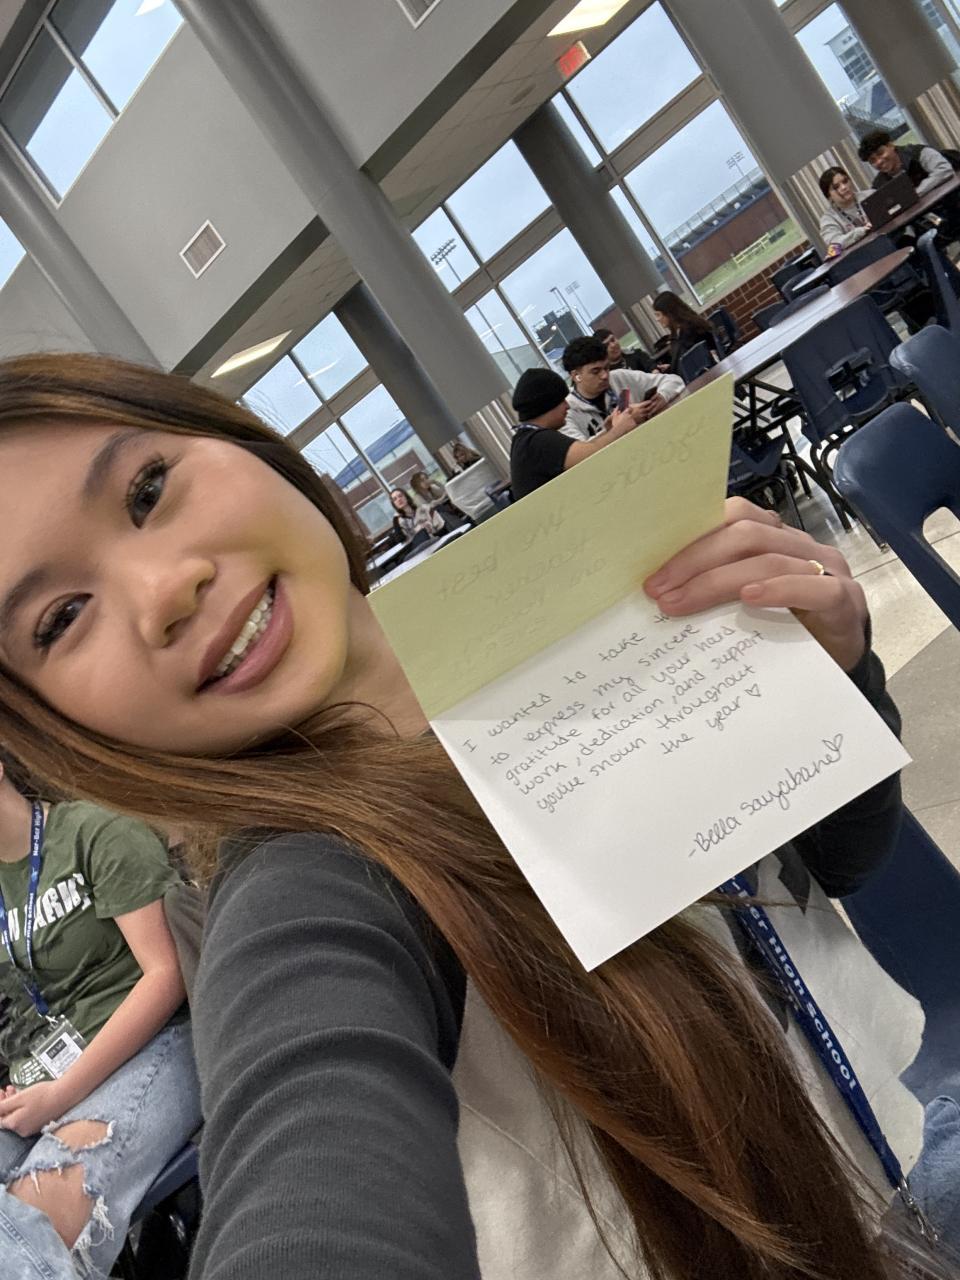 I wanted to take
to express my sincere
gratitude for all your hard
work, dedication, and support
you've shown throughout
the year ♡
-Bella Sayabane♡
Har-Ber High
Ber High School